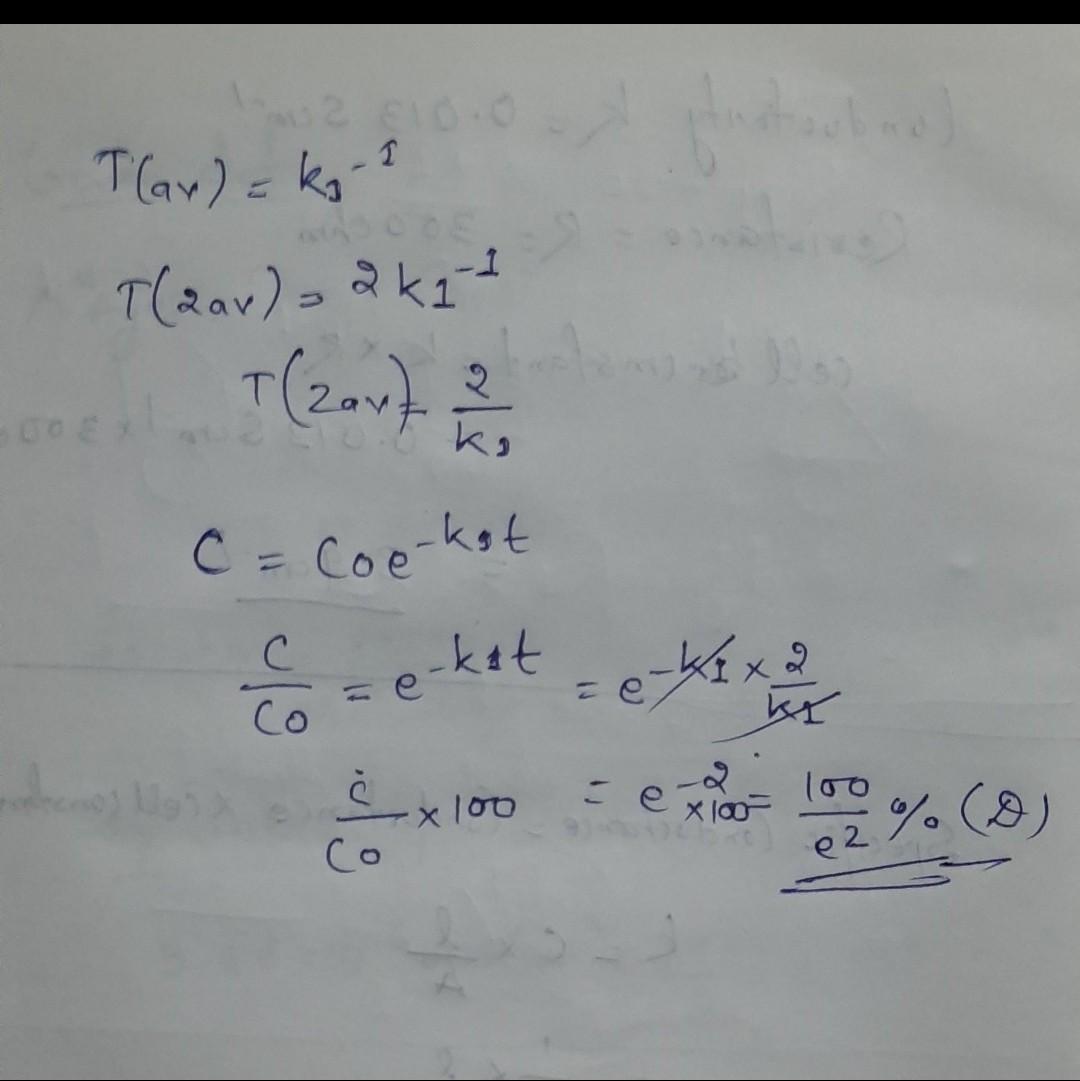 T(av) = k1⁻¹
T(2av) = 2 k1⁻¹
T(2av) = 2/k1
C = C0e⁻ᵏ¹ᵗ
C/C0 = e⁻ᵏ¹ᵗ = e^(-k1 × 2/k1)
C/C0 × 100 = e⁻² × 100 = 100/e² % (D)